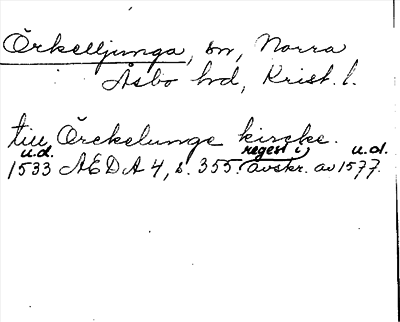 Örkelljunga, sn, Norra
Åsbo hd, Krist. l.
till Örckelunge kircke.
u.d. regest i u.d.
1533 ÆDA 4, s. 355. avskr. av 1577.